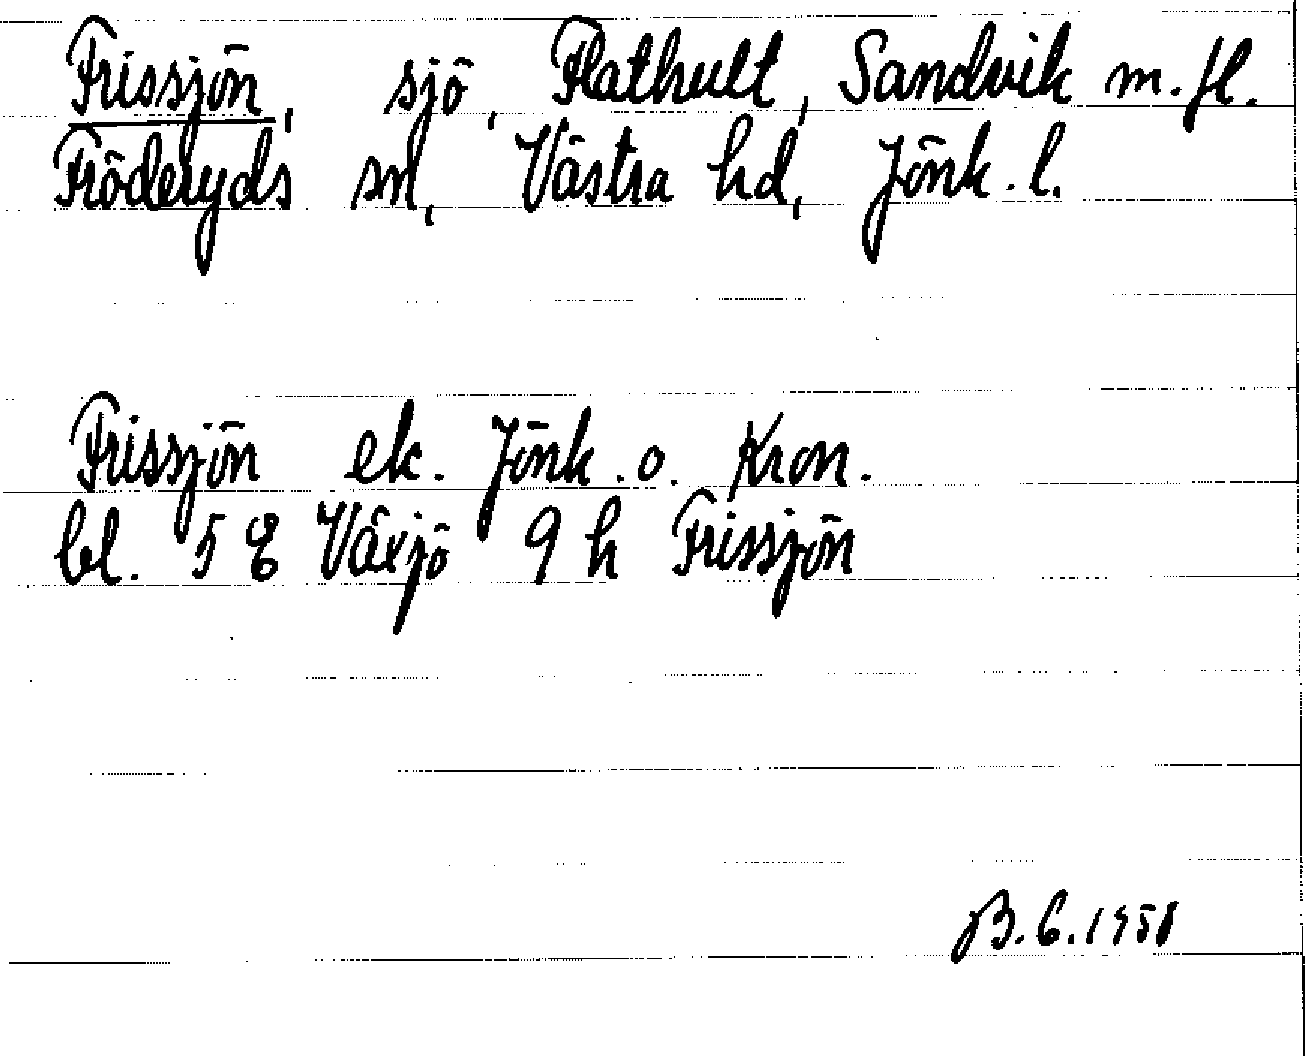 Frissjön, sjö, Flathult, Sandvik m.fl.
Fröderyds sn, Västra hd, Jönk.l.
Frissjön ek. Jönk.o. Kron.
bl. 5 E Växjö 9 h Frissjön
B.G.1958